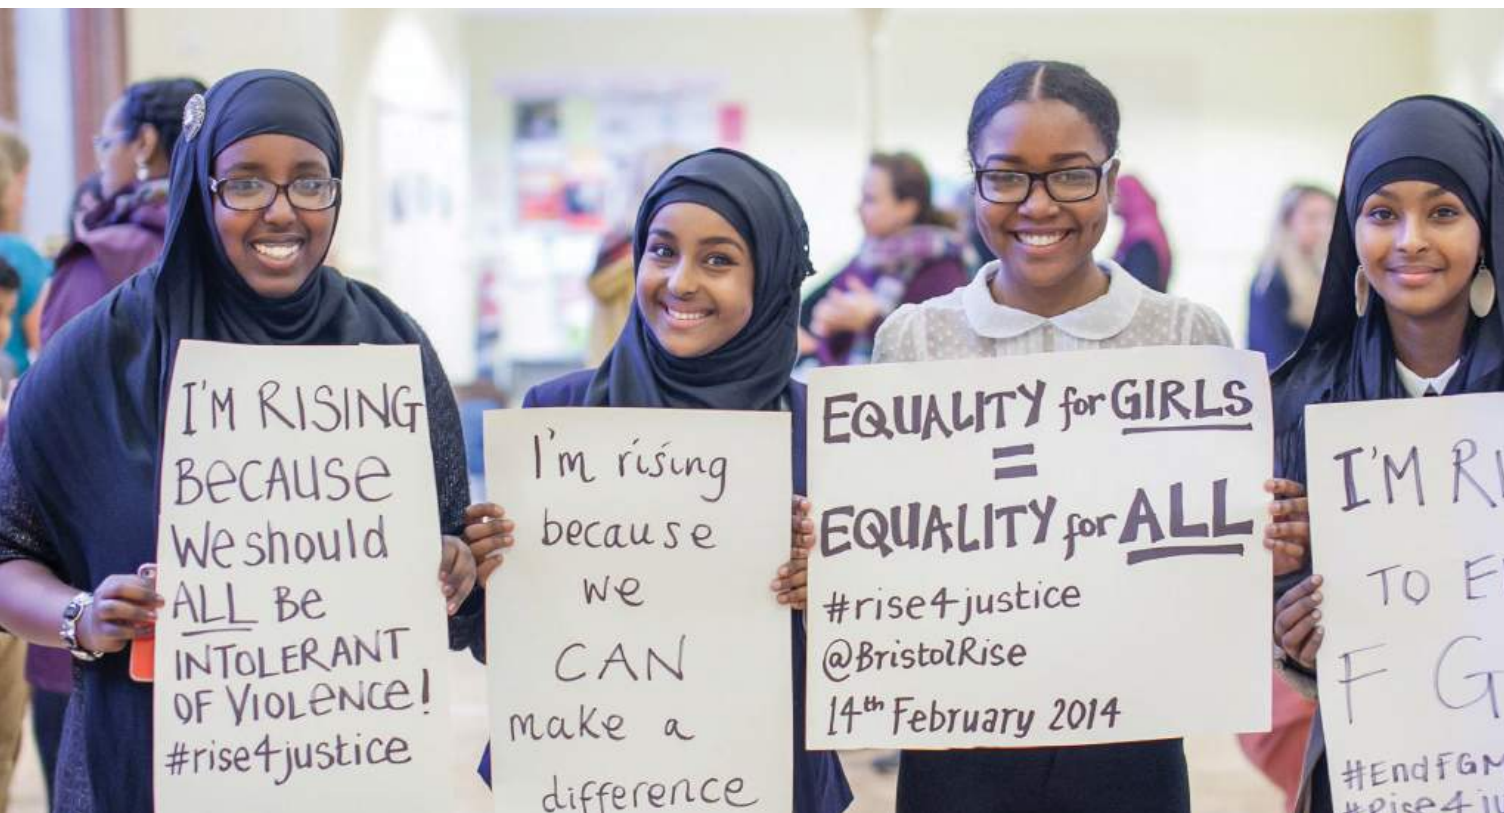 I'M RISING
BECAUSE
We should
ALL Be
INTOLERANT
OF VIOLENCE!
#rise4justice
I'm rising
because
we
CAN
make a
difference
EQUALITY for GIRLS
=
EQUALITY for ALL
#rise4justice
@BristolRise
14th February 2014
I'M
TO
F G
#EndFGM